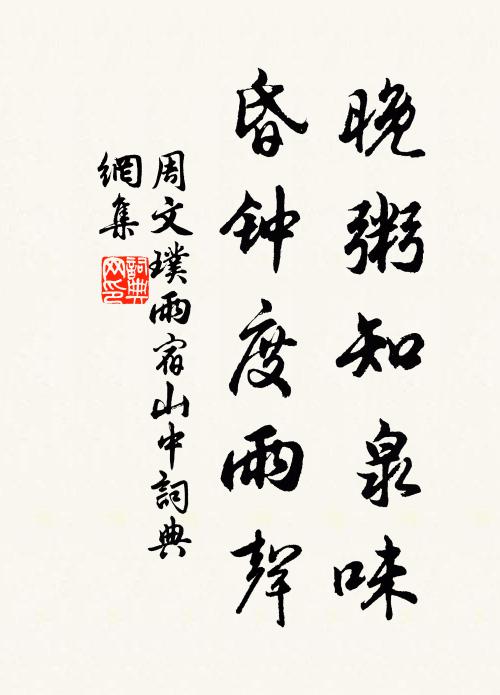 晚粥知泉味
昏钟度雨聲
周文璞雨宿山中詞典
網集
詞典網印